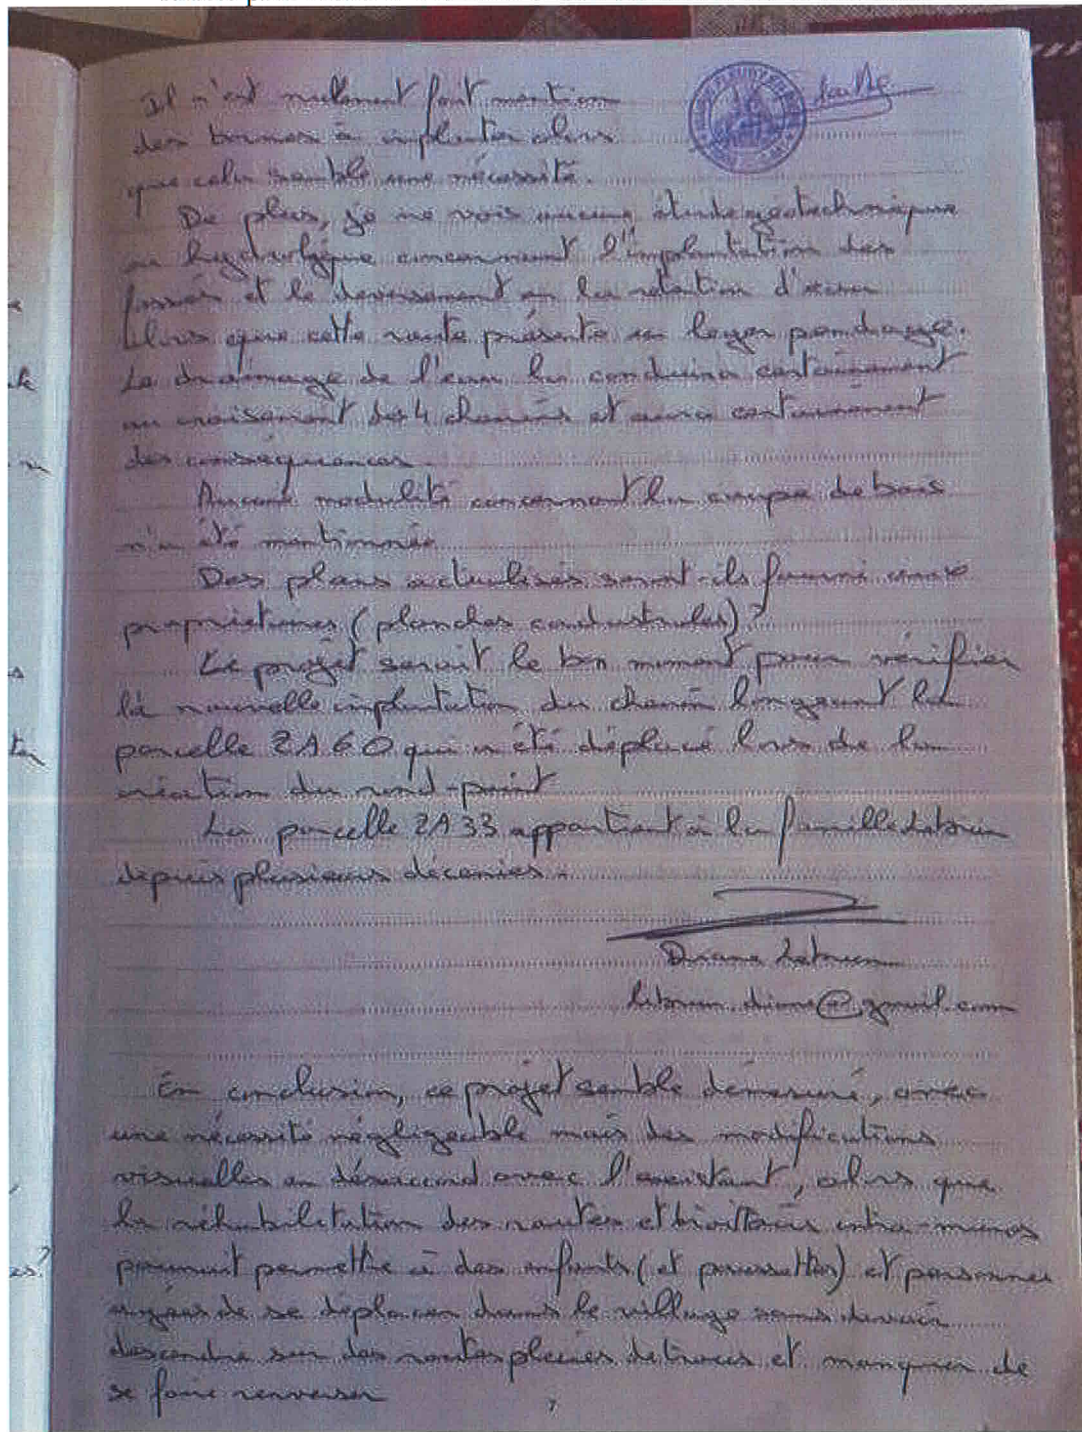 Il n'est nullement fait mention
des bornes à implanter alors
que cela semble une nécessité.
De plus, je ne vois aucune étude géotechnique
ou hydrolgique concernant l'implantation des
fossés et le deversement ou la rétention d'eau
Alors que cette route présente un leger pendage.
Le drainage de l'eau la conduira certainement
au croisement des 4 chemins et aura certainement
des conséquences.
Aucune modalité concernant la coupe de bois
n'a été mentionnée
Des plans actualisés seront-ils fourni aux
propriétaires (planches cadastrales) ?
Le projet serait le bon moment pour vérifier
la nouvelle implantation du chemin longeant la
parcelle ZA 60 qui a été déplacé lors de la
création du rond-point
La parcelle ZA 33 appartient à la famille Lebrun
depuis plusieurs décenies.
Diane Lebrun
lebrun.diane@gmail.com
En conclusion, ce projet semble démesuré, avec
une nécessité négligeable mais des modifications
visuelles en désaccord avec l'existant, alors que
la réhabilitation des routes et trottoirs intra-muros
pourrait permettre à des enfants (et poussettes) et personnes
agées de se déplacer dans le village sans devoir
descendre sur des routes pleines de trous et manquer de
se faire renverser